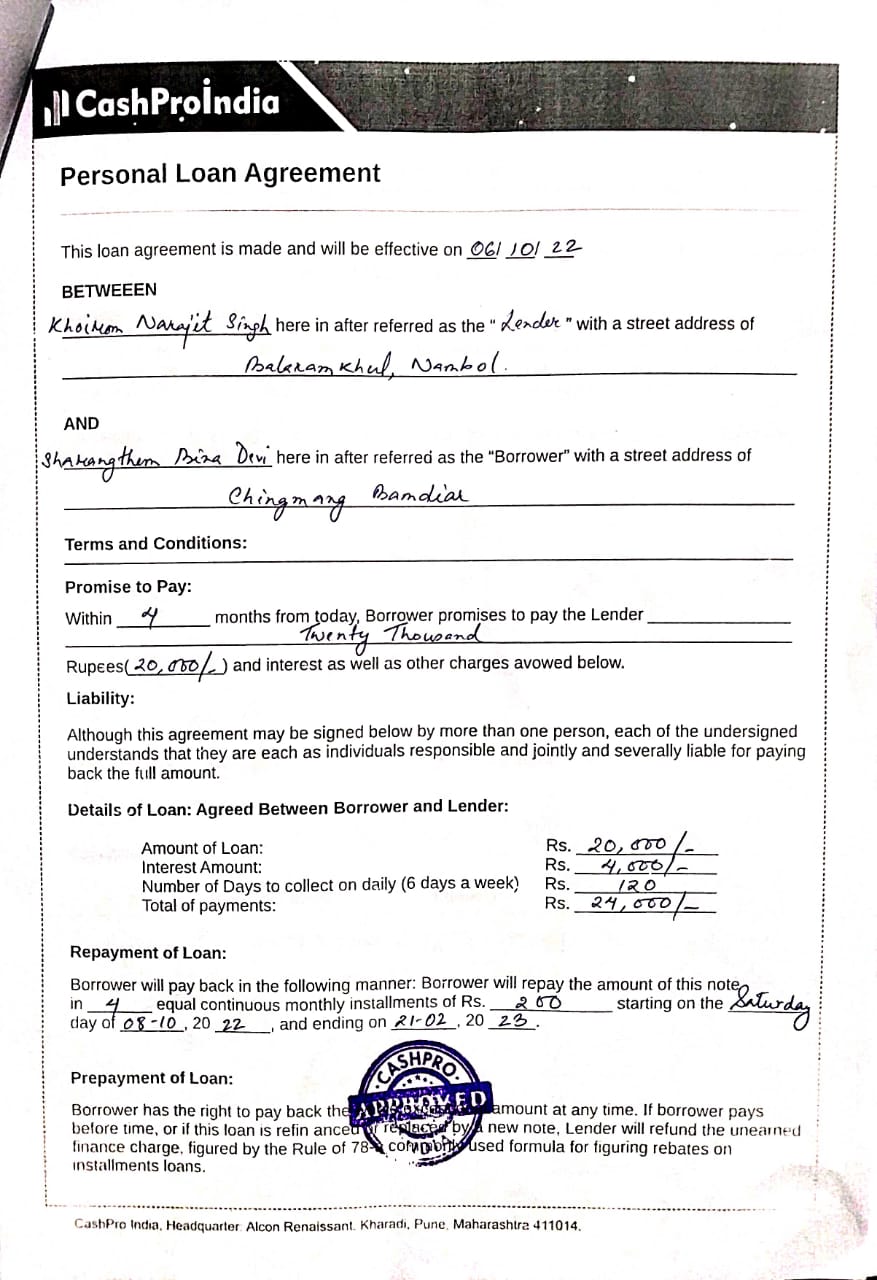 CashProIndia
Personal Loan Agreement
This loan agreement is made and will be effective on 06/ 10/ 22
BETWEEEN
Khoirom Narajit Singh here in after referred as the “ Lender ” with a street address of
Balaram Khul, Nambol.
AND
Sharangthem Bina Devi here in after referred as the “Borrower” with a street address of
Chingmang Bamdiar
Terms and Conditions:
Promise to Pay:
Within 4 months from today, Borrower promises to pay the Lender
Twenty Thousand
Rupees( 20,000/- ) and interest as well as other charges avowed below.
Liability:
Although this agreement may be signed below by more than one person, each of the undersigned
understands that they are each as individuals responsible and jointly and severally liable for paying
back the full amount.
Details of Loan: Agreed Between Borrower and Lender:
Amount of Loan: Rs. 20,000/-
Interest Amount: Rs. 4,000/-
Number of Days to collect on daily (6 days a week) Rs. 120
Total of payments: Rs. 24,000/-
Repayment of Loan:
Borrower will pay back in the following manner: Borrower will repay the amount of this note
in 4 equal continuous monthly installments of Rs. 200 starting on the Saturday
day of 08-10 , 20 22 , and ending on 21-02 , 20 23 .
CASHPRO
APPROVED
Prepayment of Loan:
Borrower has the right to pay back the amount at any time. If borrower pays
before time, or if this loan is refin anced or replaced by a new note, Lender will refund the unearned
finance charge, figured by the Rule of 78-a commonly used formula for figuring rebates on
installments loans.
CashPro India, Headquarter: Alcon Renaissant, Kharadi, Pune, Maharashtra 411014.